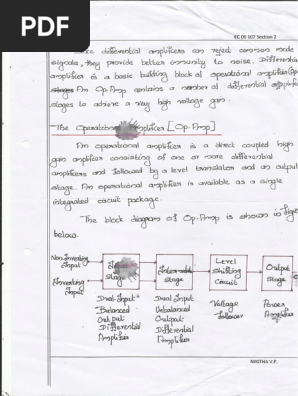 PDF
EC 09 107 Section 2
Since differential amplifiers can reject common mode
signals, they provide better immunity to noise. Differential
amplifier is a basic building block of operational amplifier
An Op.Amp contains a number of differential amplifier
stages to achieve a very high voltage gain.
The Operational Amplifier [Op-Amp]
An operational amplifier is a direct coupled high
gain amplifier consisting of one or more differential
amplifiers and followed by a level translator and an output
stage. An operational amplifier is available as a single
integrated circuit package.
The block diagram of Op-Amp is shown in
below.
Non-Inverting
Input
Inverting
Input
Input
Stage
Intermediate
Stage
Level
Shifting
Circuit
Output
Stage
Dual-Input
Balanced
Output
Differential
Amplifier
Dual Input
Unbalanced
Output
Differential
Amplifier
Voltage
follower
Power
Amplifier
NIKITHA V.P.